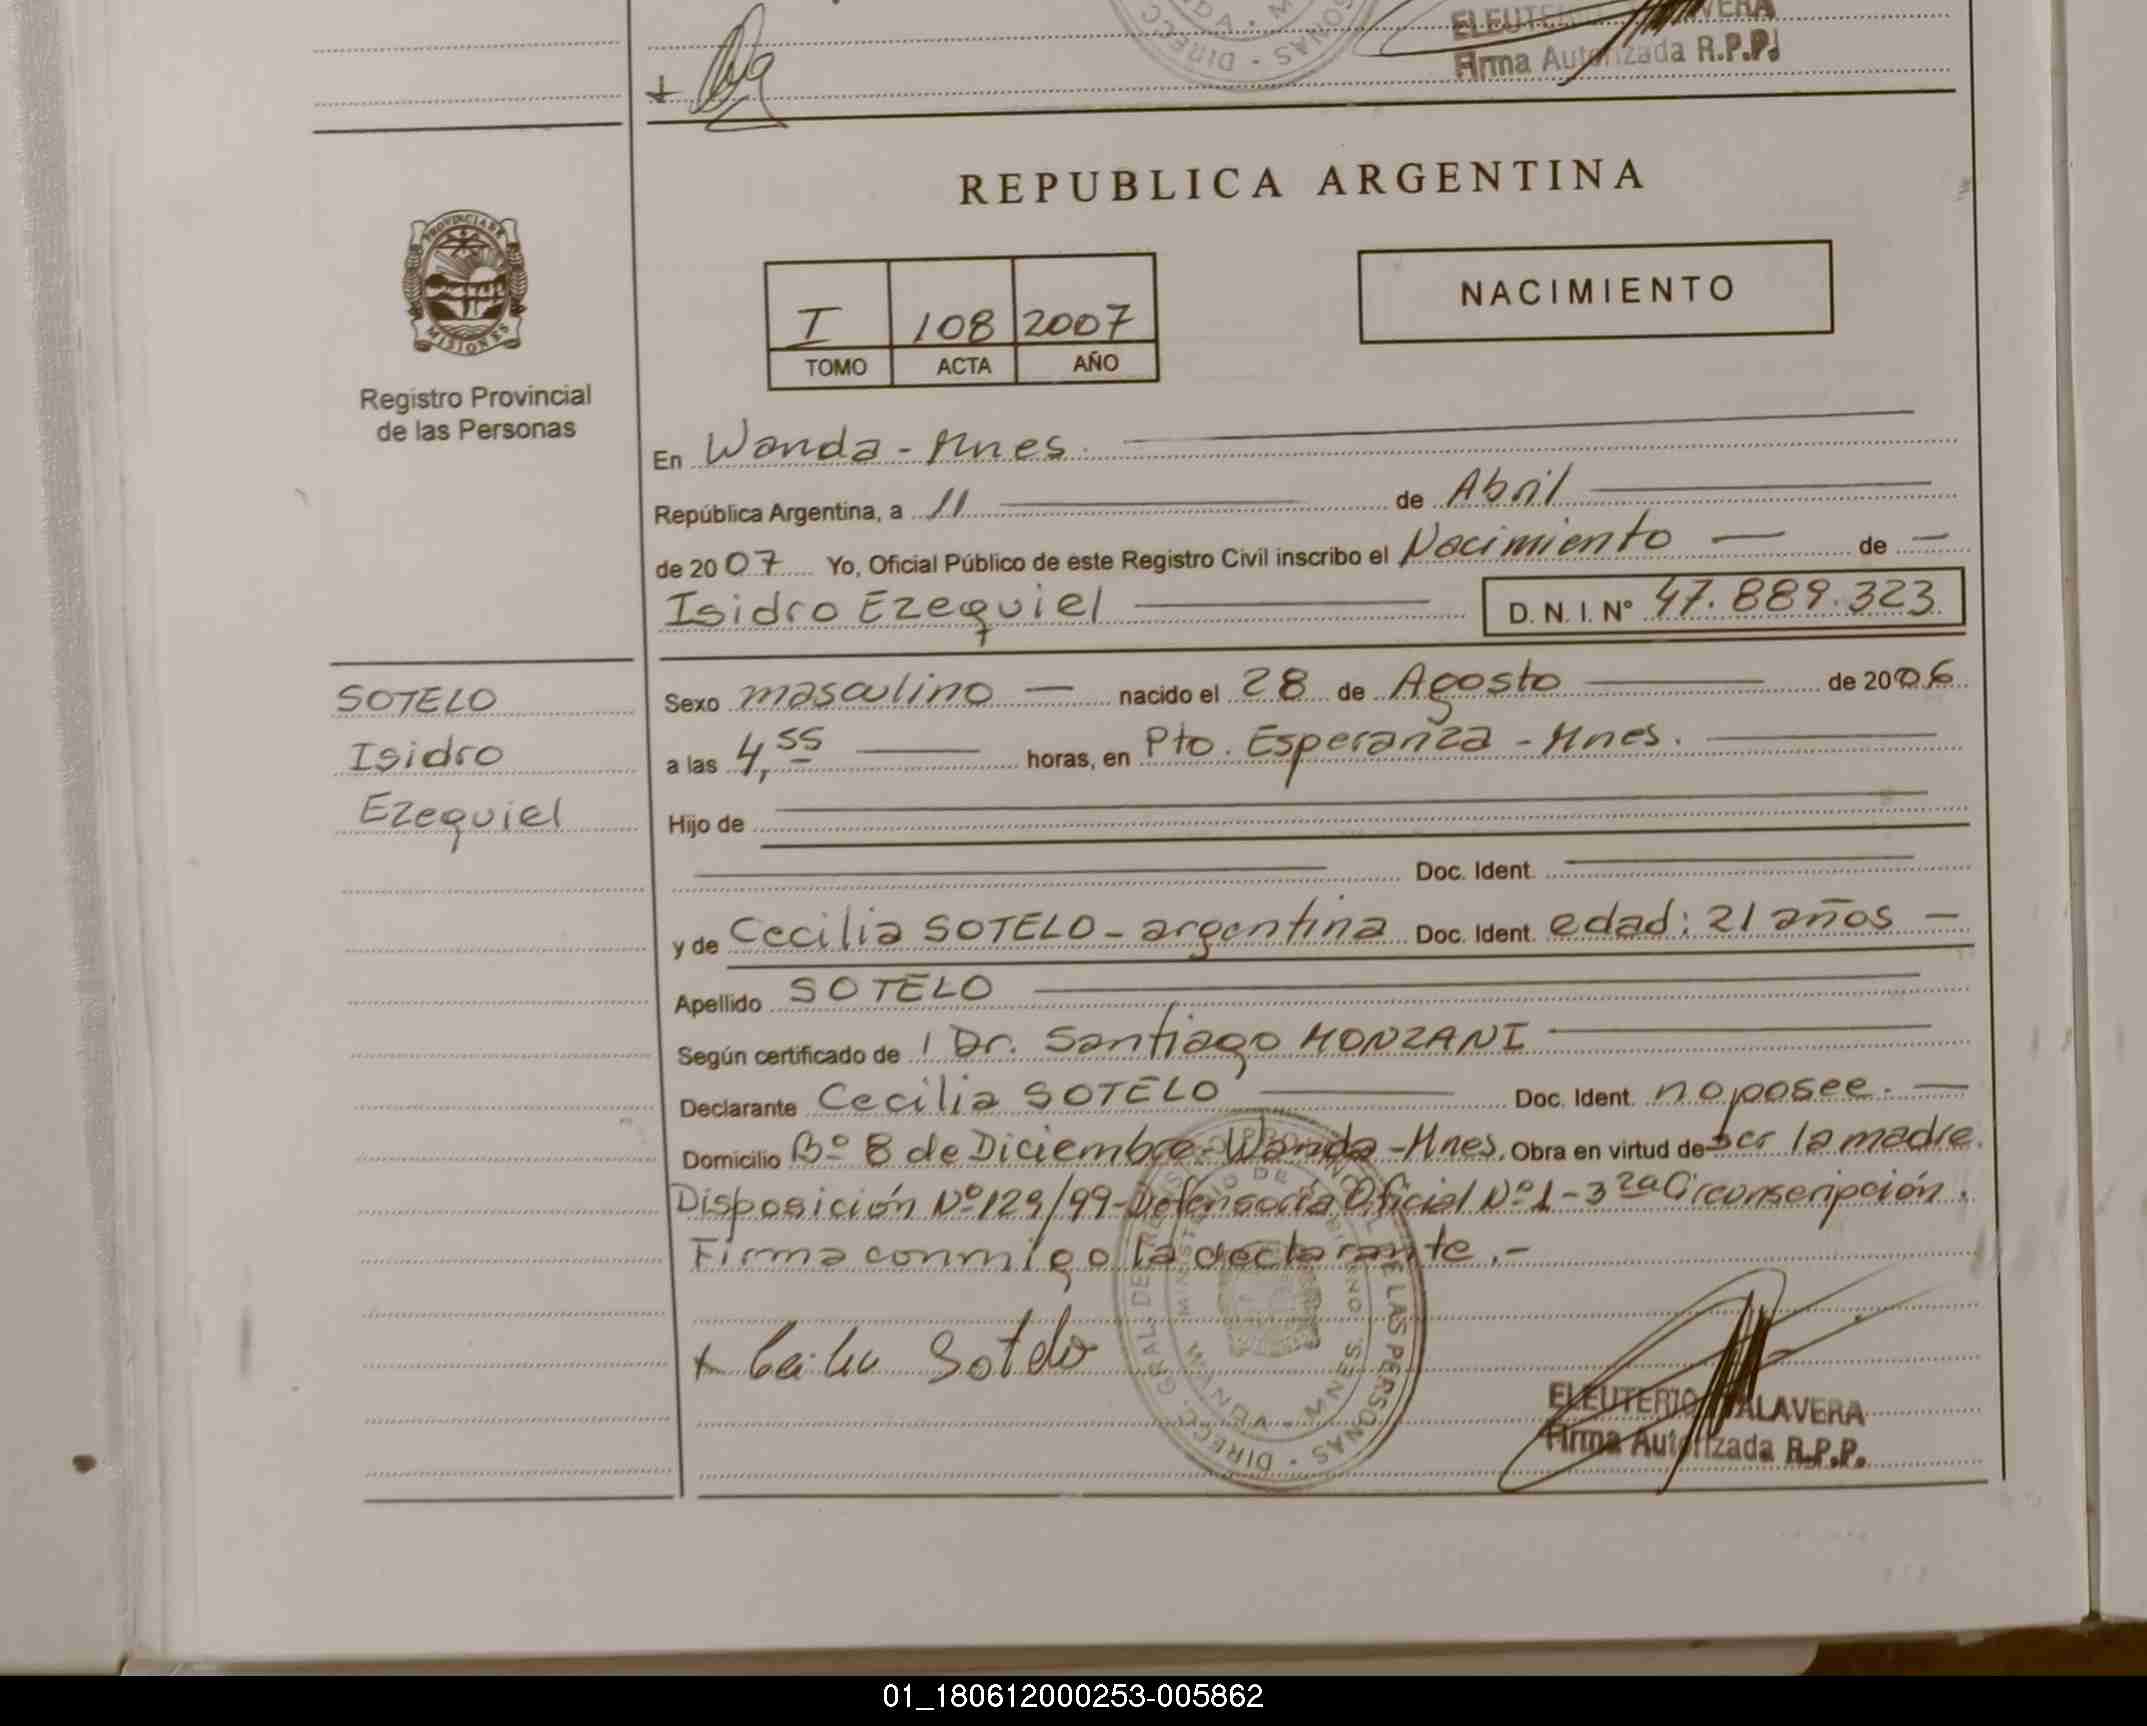 ELEUTERIO TALAVERA
Firma Autorizada R.P.P.
DIRECC
PROVINCIA DE
MISIONES
Registro Provincial
de las Personas
REPUBLICA ARGENTINA
I 108 2007
TOMO ACTA AÑO
NACIMIENTO
En Wanda - Mnes.
República Argentina, a 11 de Abril
de 2007 Yo, Oficial Público de este Registro Civil inscribo el Nacimiento de
Isidro Ezequiel D. N. I. Nº 47.889.323
SOTELO
Isidro
Ezequiel
Sexo masculino nacido el 28 de Agosto de 2006
a las 4,55 horas, en Pto. Esperanza - Mnes.
Hijo de
Doc. Ident.
y de Cecilia SOTELO - argentina Doc. Ident. edad: 21 años
Apellido SOTELO
Según certificado de Dr. Santiago MONZANI
Declarante Cecilia SOTELO Doc. Ident. no posee.
Domicilio Bº 8 de Diciembre - Wanda - Mnes. Obra en virtud de ser la madre.
Disposición Nº 129/99 - Defensoría Oficial Nº 1 - 3ra Circunscripción.
Firma conmigo la declarante.-
+ Cecilia Sotelo
ELEUTERIO TALAVERA
Firma Autorizada R.P.P.
01_180612000253-005862